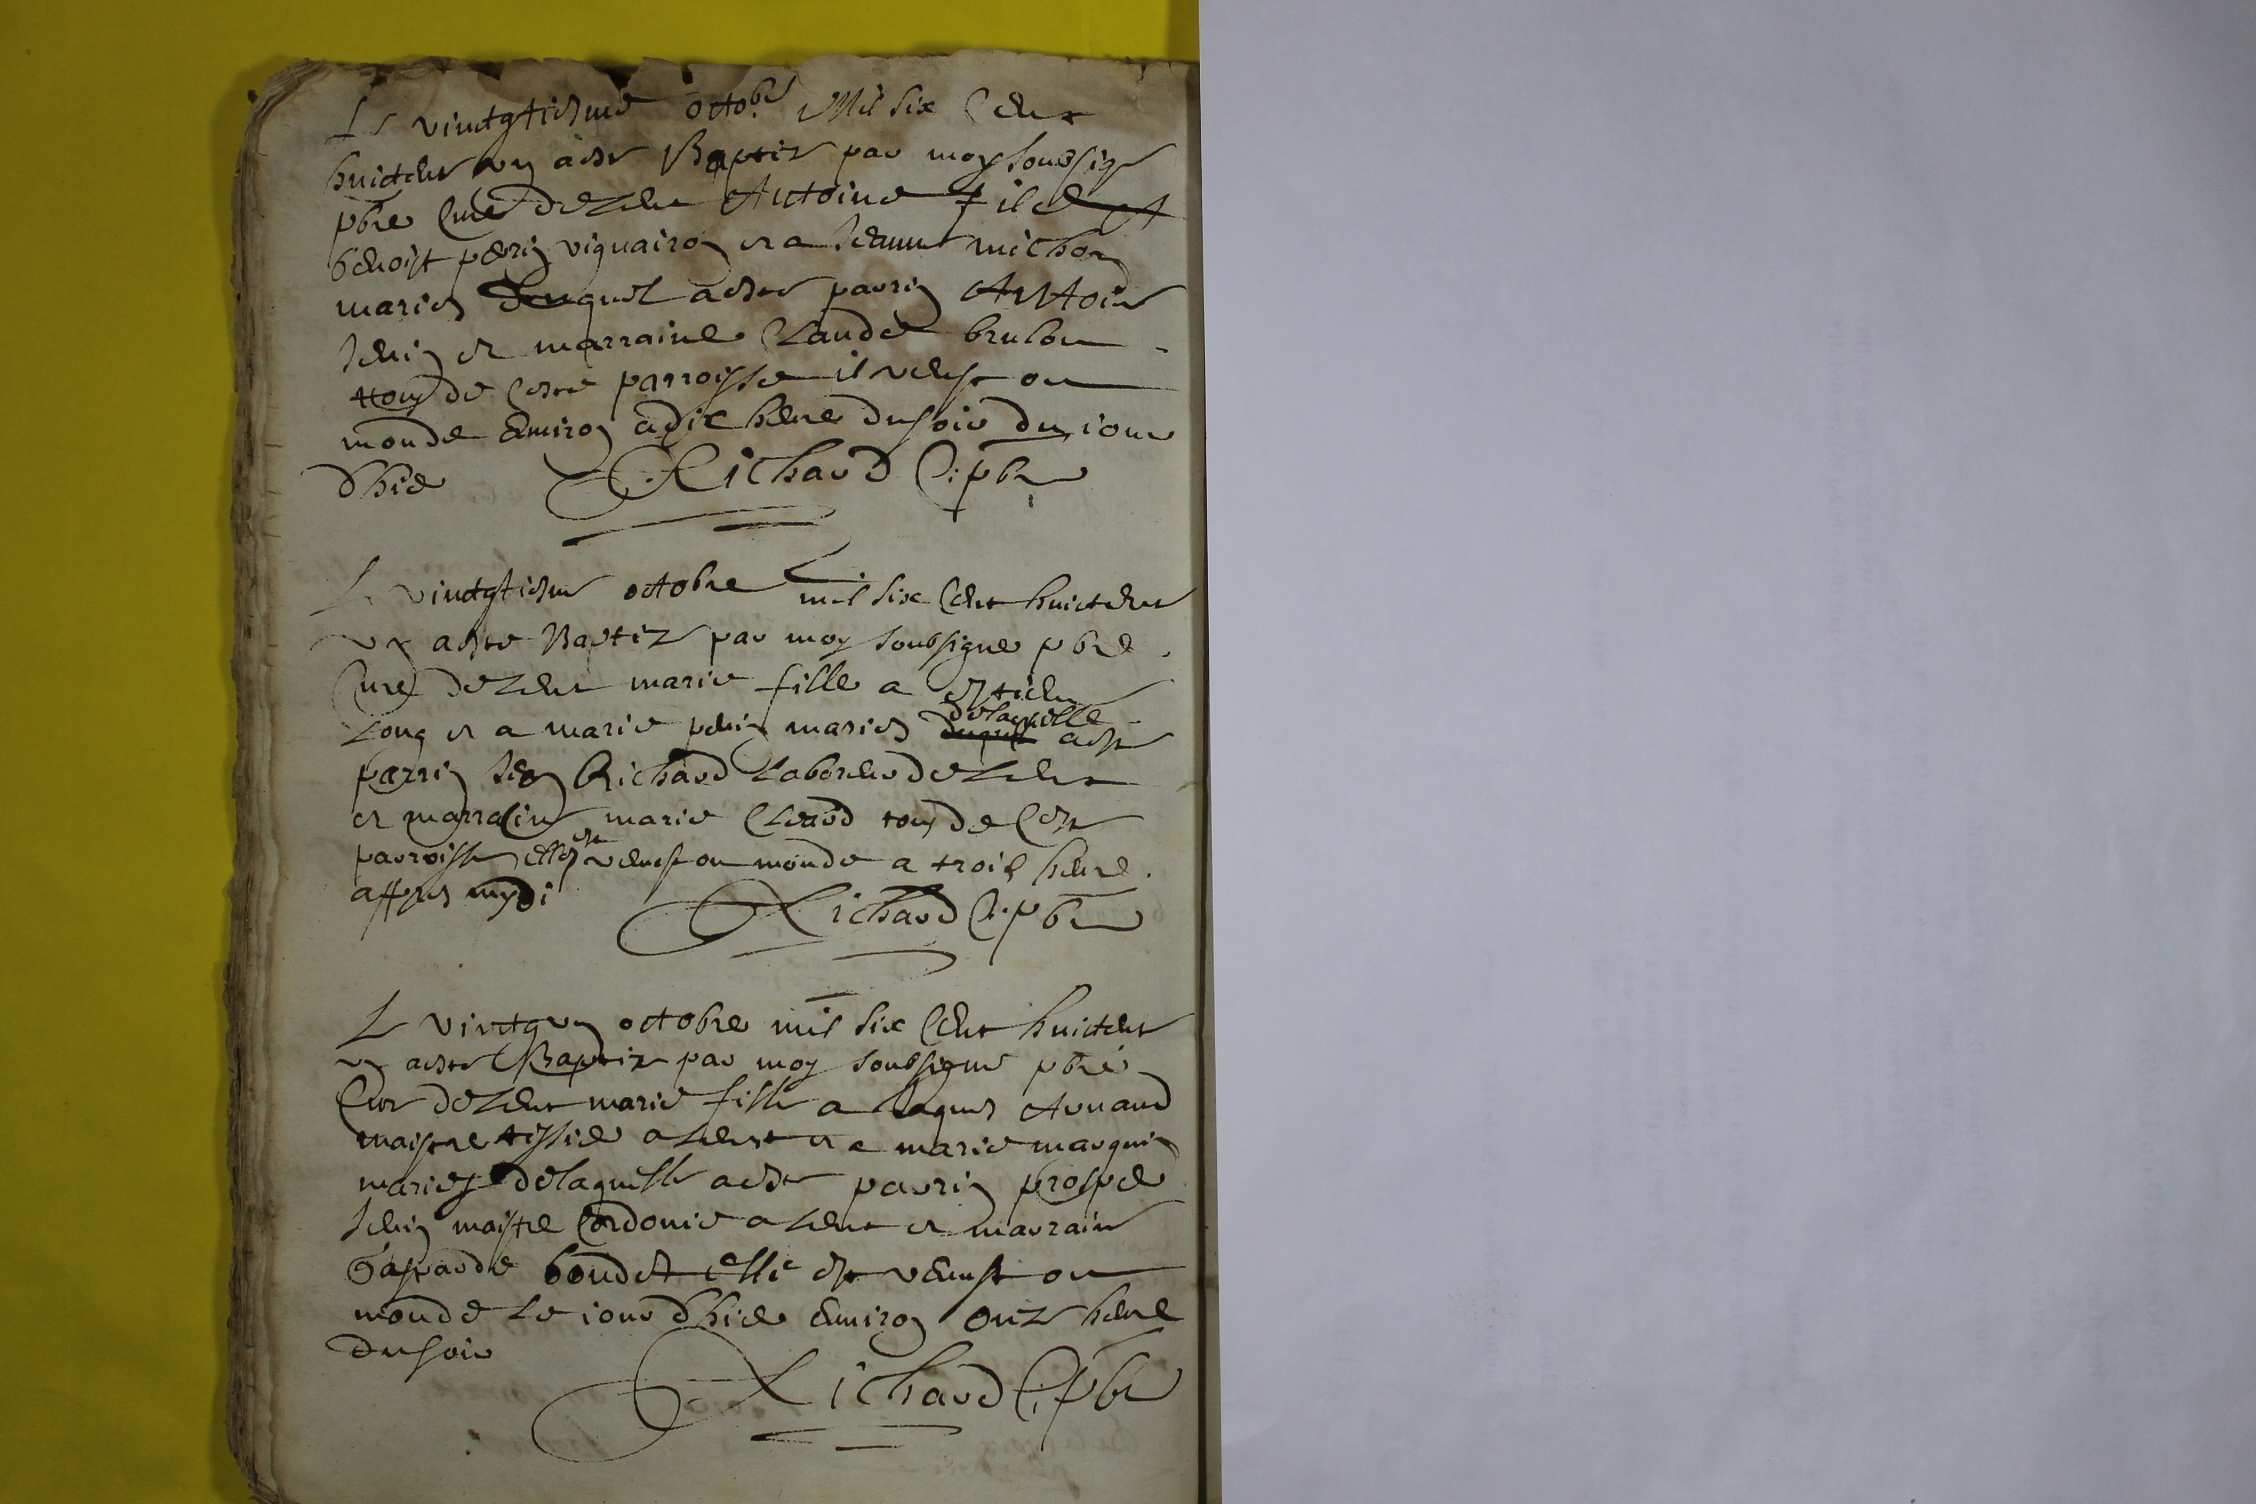 Le vingtgtiesme octobre Mil six Cent
huictent un a este Baptiz par moy soubsigne
pbre Cure de Lent Antoine fils a
benoist perin vignairon et a Jeanne michon
maries duquel a este parrin Antoine
Jenin et marraine Claude brulon
tous de Ceste parroisse il venst ou
monde Environ a dix heure du soir du iour
d'hier Richard C: pbr
Le vingtgtiesme octobre mil six Cent huictent
un a este Baptiz par moy soubsigne pbre
Cure de Lent marie fille a estien
Long et a marie penin maries duquel delaquelle a este
parrin Jean Richard Laboreur de Lent
et marraine marie Cleard tous de Ceste
parroisse elle est venust ou monde a trois heure
apres mydi Richard C: pbr
Le vingtgun octobre mil six Cent huictent
un a este Baptiz par moy soubsigne pbre
Cure de Lent marie fille a Jaques Arnaud
maistre tissie a Lent et a marie marguin
maries delaquelle a este parrin prosper
Jenin maistre Cordonie a Lent et marraine
Gasparde boudet elle est venust ou
monde Le iour d'hier Environ onze heure
du soir Richard C: pbr